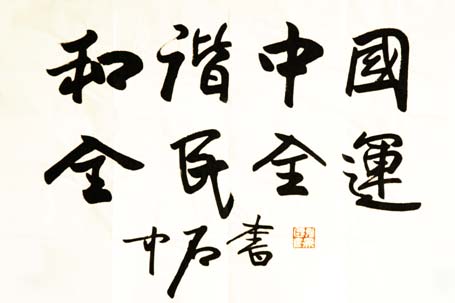 和谐中國
全民全運
中石書